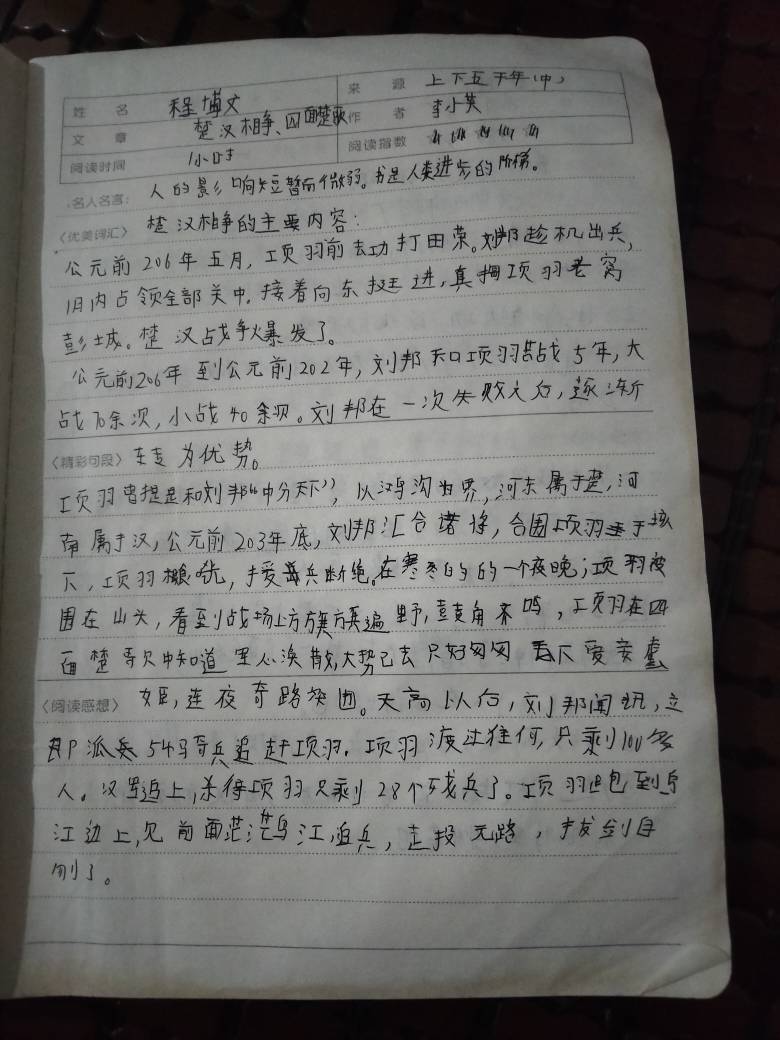 姓 名 程博文 来 源 上下五千年(中)
文 章 楚汉相争、四面楚歌 作 者 李小英
阅读时间 1小时 阅读指数
名人名言: 人的影响短暂而微弱。书是人类进步的阶梯。
〈优美词汇〉 楚汉相争的主要内容:
公元前206年五月,项羽前去功打田荣。刘邦趁机出兵,
1月内占领全部关中,接着向东挺进,真捣项羽老窝
彭城。楚汉战争爆发了。
公元前206年到公元前202年,刘邦和项羽苦战5年,大
战70余次,小战40余次。刘邦在一次失败之后,逐渐
〈精彩句段〉 转为优势。
项羽曾提是和刘邦“中分天下”,以鸿沟为界,河东属于楚,河
南属于汉,公元前203年底,刘邦汇合诸将,合围项羽于垓
下,项羽粮吮,援兵断绝。在寒冬的的一个夜晚;项羽被
围在山头,看到战场上方旗遍野,鼓角齐鸣,项羽在四
面楚哥欠中知道军心涣散,大势已去只好匆匆丢下爱妾虞
〈阅读感想〉 姬,连夜奇路突围。天高以后,刘邦闻讯,立
即派兵54马奇兵追赶项羽.项羽渡过淮何,只剩100多
人。汉军追上,杀得项羽只剩28个残兵了。项羽跑到乌
江边上,见前面茫茫乌江,追兵,走投无路,拔剑自
刎了。